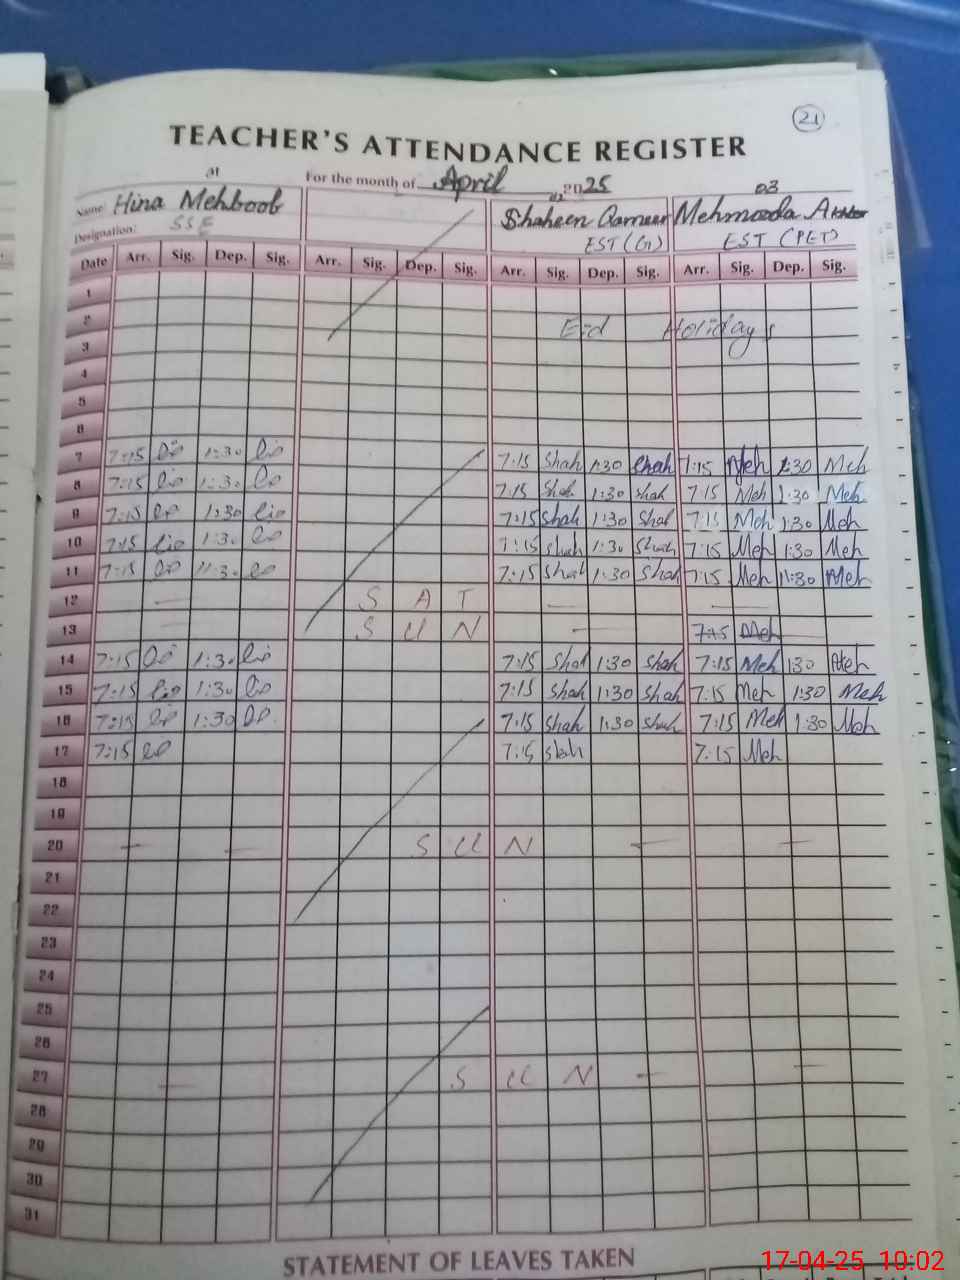 21
TEACHER'S ATTENDANCE REGISTER
For the month of April 2025
01 02 03
Name: Hina Mehboob Shaheen Qameer Mehmooda Akhter
Designation: SSE EST (G) EST (PET)
Date Arr. Sig. Dep. Sig. Arr. Sig. Dep. Sig. Arr. Sig. Dep. Sig. Arr. Sig. Dep. Sig.
1
2 Eid Holidays
3
4
5
6
7 7:15 1:30 7:15 Shah 1:30 Shah 7:15 Meh 1:30 Meh
8 7:15 1:30 7:15 Shah 1:30 Shah 7:15 Meh 1:30 Meh
9 7:15 1:30 7:15 Shah 1:30 Shah 7:15 Meh 1:30 Meh
10 7:15 1:30 7:15 Shah 1:30 Shah 7:15 Meh 1:30 Meh
11 7:15 11:30 7:15 Shah 1:30 Shah 7:15 Meh 11:30 Meh
12 — S A T — —
13 — S U N — 7:15 Meh —
14 7:15 1:30 7:15 Shah 1:30 Shah 7:15 Meh 1:30 Meh
15 7:15 1:30 7:15 Shah 1:30 Shah 7:15 Meh 1:30 Meh
16 7:15 1:30 7:15 Shah 1:30 Shah 7:15 Meh 1:30 Meh
17 7:15 7:15 Shah 7:15 Meh
18
19
20 — — S U N — —
21
22
23
24
25
26
27 — S U N — —
28
29
30
31
STATEMENT OF LEAVES TAKEN
17-04-25 10:02